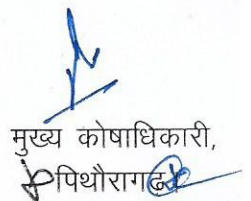 मुख्य कोषाधिकारी,
पिथौरागढ़